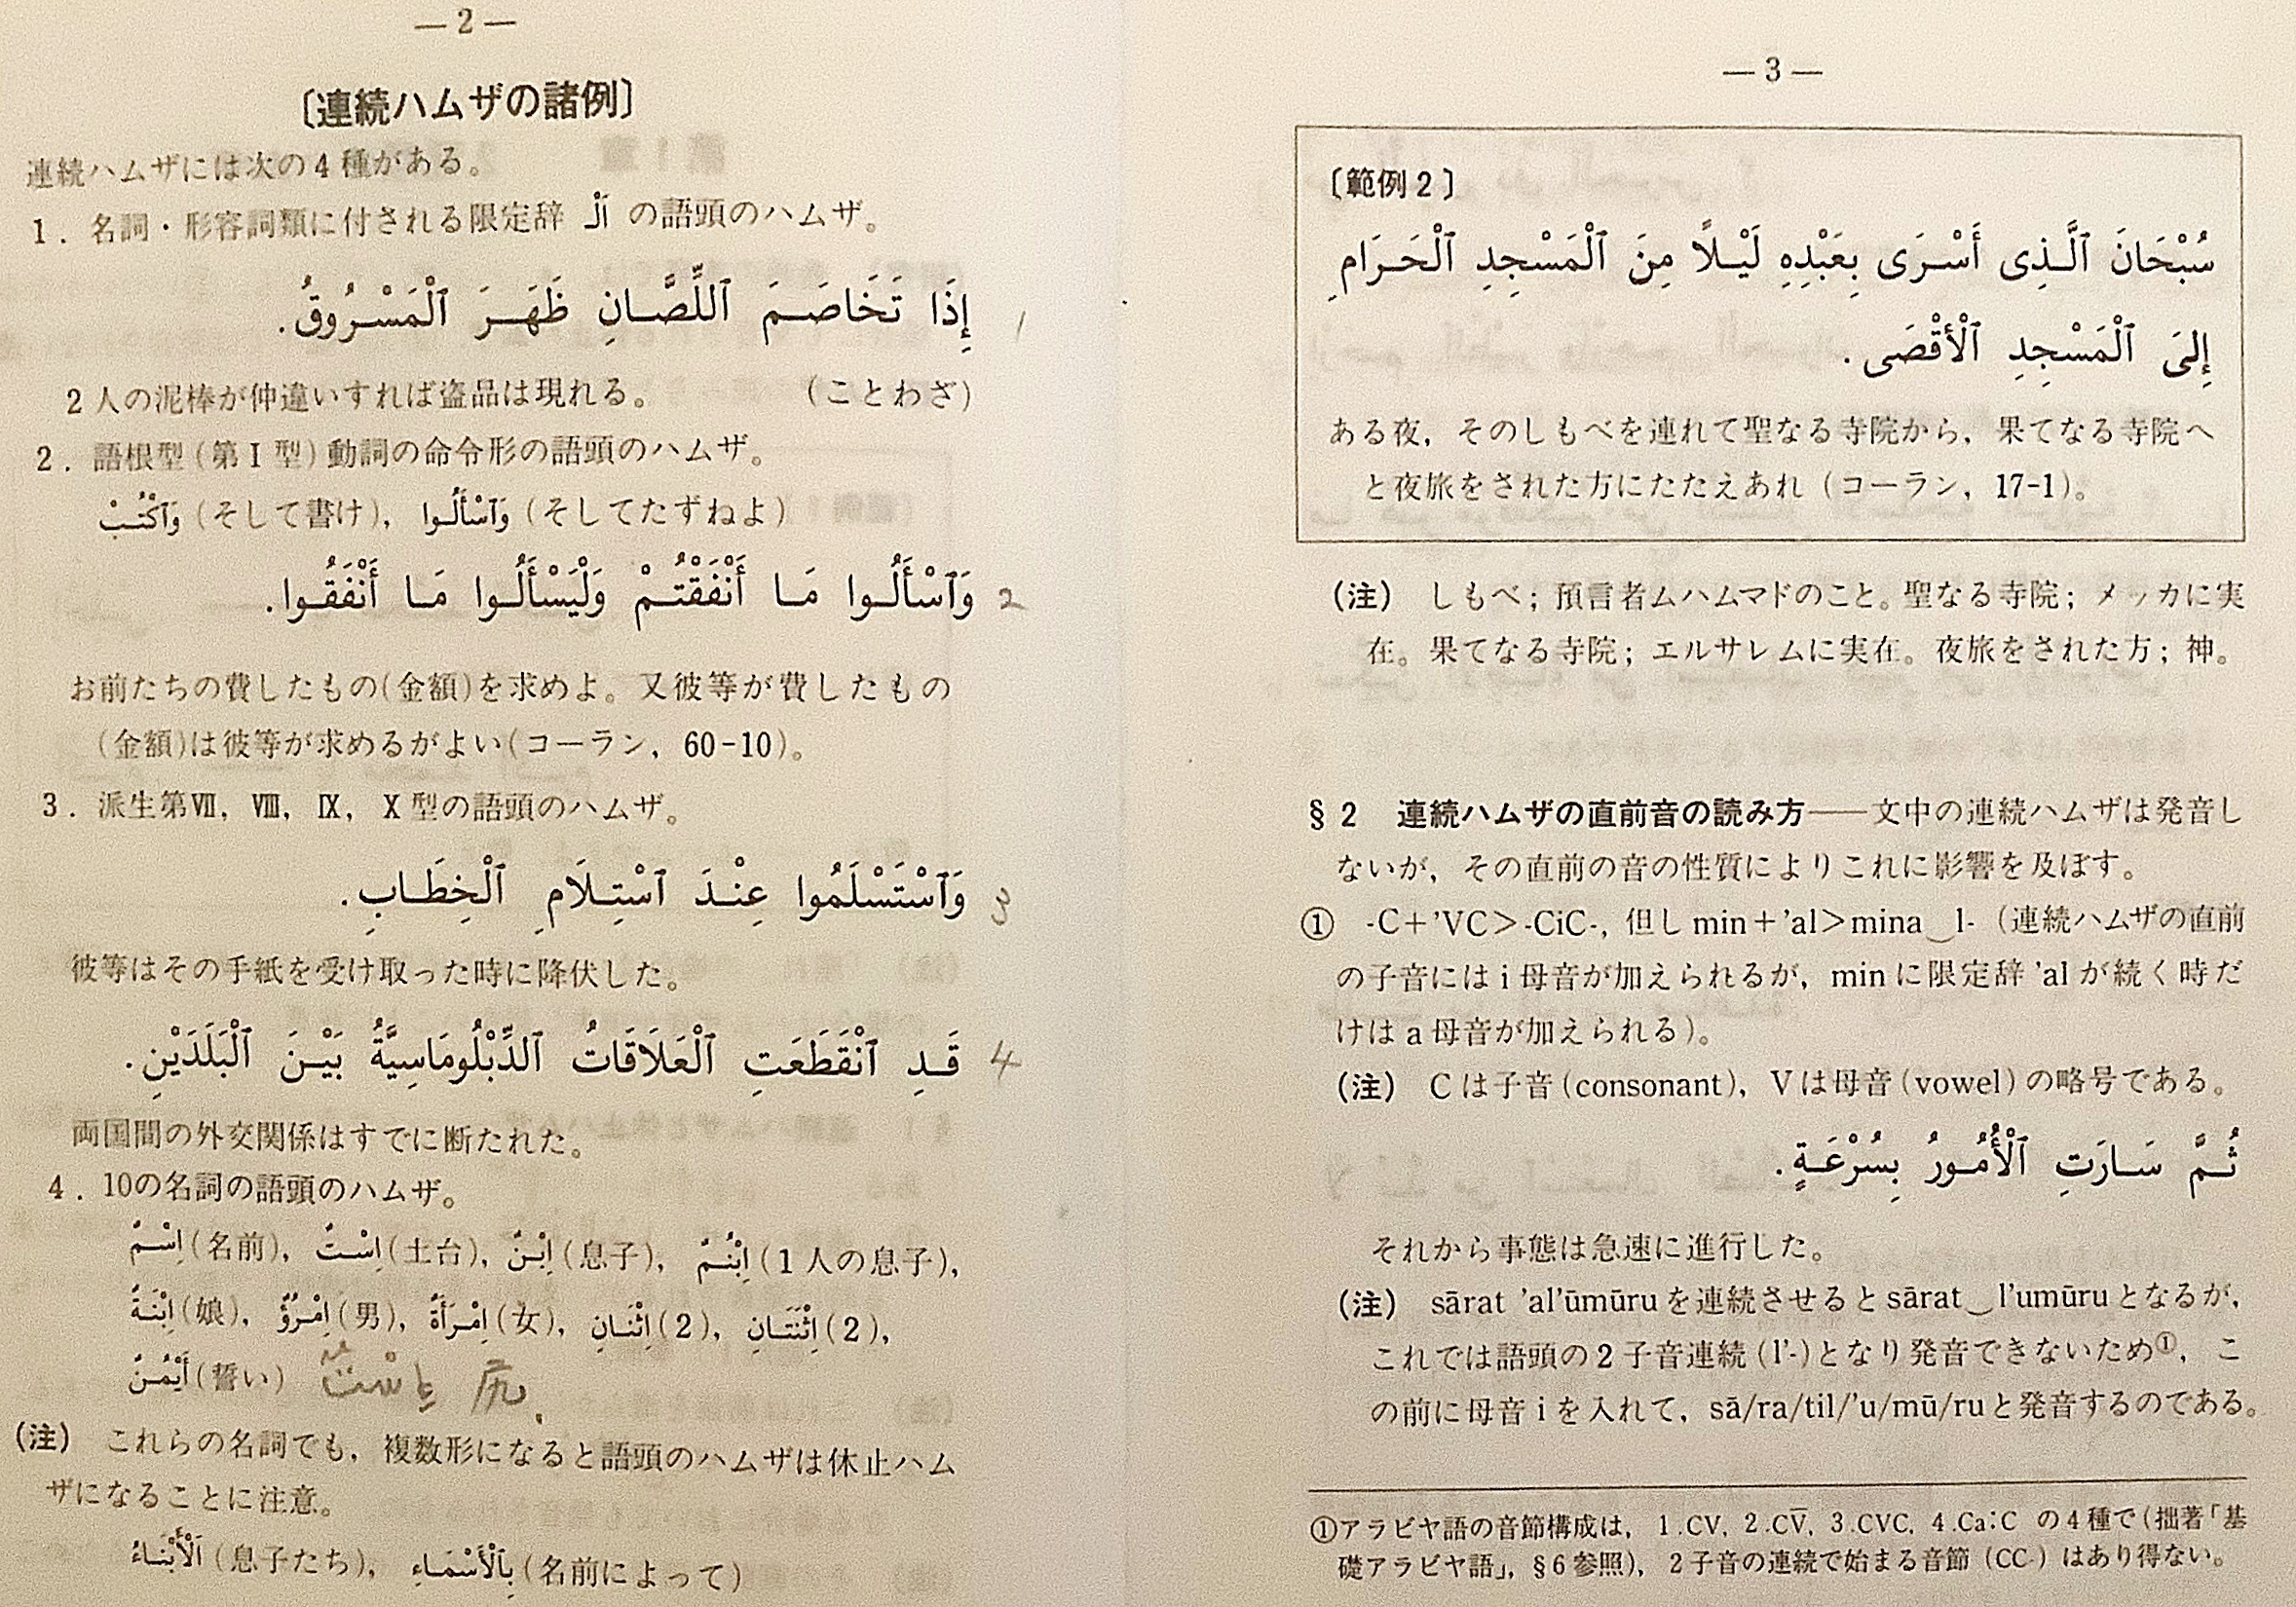 — 2 —
〔連続ハムザの諸例〕
連続ハムザには次の4種がある。
1. 名詞・形容詞類に付される限定辞 اَلْـ の語頭のハムザ。
إِذَا تَخَاصَمَ ٱللِّصَّانِ ظَهَرَ ٱلْمَسْرُوقُ. 1
2人の泥棒が仲違いすれば盗品は現れる。 (ことわざ)
2. 語根型(第Ⅰ型)動詞の命令形の語頭のハムザ。
وَٱكْتُبْ (そして書け), وَٱسْأَلُوا (そしてたずねよ)
وَٱسْأَلُوا مَا أَنْفَقْتُمْ وَلْيَسْأَلُوا مَا أَنْفَقُوا. 2
お前たちの費したもの(金額)を求めよ。又彼等が費したもの
(金額)は彼等が求めるがよい(コーラン, 60-10)。
3. 派生第Ⅶ, Ⅷ, Ⅸ, Ⅹ型の語頭のハムザ。
وَٱسْتَسْلَمُوا عِنْدَ ٱسْتِلَامِ ٱلْخِطَابِ. 3
彼等はその手紙を受け取った時に降伏した。
قَدِ ٱنْقَطَعَتِ ٱلْعَلَاقَاتُ ٱلدِّبْلُومَاسِيَّةُ بَيْنَ ٱلْبَلَدَيْنِ. 4
両国間の外交関係はすでに断たれた。
4. 10の名詞の語頭のハムザ。
اِسْمٌ (名前), اِسْتٌ (土台), اِبْنٌ (息子), اِبْنُمٌ (1人の息子),
اِبْنَةٌ (娘), اِمْرُؤٌ (男), اِمْرَأَةٌ (女), اِثْنَانِ (2), اِثْنَتَانِ (2),
أَيْمُنٌ (誓い) اِسْتٌ 尻.
(注) これらの名詞でも, 複数形になると語頭のハムザは休止ハム
ザになることに注意。
اَلْأَبْنَاءُ (息子たち), بِٱلْأَسْمَاءِ (名前によって)
— 3 —
〔範例2〕
سُبْحَانَ ٱلَّذِى أَسْرَى بِعَبْدِهِ لَيْلاً مِنَ ٱلْمَسْجِدِ ٱلْحَرَامِ
إِلىَ ٱلْمَسْجِدِ ٱلْأَقْصَى.
ある夜, そのしもべを連れて聖なる寺院から, 果てなる寺院へ
と夜旅をされた方にたたえあれ (コーラン, 17-1)。
(注) しもべ; 預言者ムハムマドのこと。聖なる寺院; メッカに実
在。果てなる寺院; エルサレムに実在。夜旅をされた方; 神。
§2 連続ハムザの直前音の読み方——文中の連続ハムザは発音し
ないが, その直前の音の性質によりこれに影響を及ぼす。
① -C+’VC>-CiC-, 但し min+’al>mina‿l- (連続ハムザの直前
の子音には i 母音が加えられるが, min に限定辞 ’al が続く時だ
けは a 母音が加えられる)。
(注) Cは子音(consonant), Vは母音(vowel)の略号である。
ثُمَّ سَارَتِ ٱلْأُمُورُ بِسُرْعَةٍ.
それから事態は急速に進行した。
(注) sārat ’al’ūmūru を連続させると sārat‿l’umūru となるが,
これでは語頭の2子音連続(l’-)となり発音できないため①, こ
の前に母音 i を入れて, sā/ra/til/’u/mū/ru と発音するのである。
①アラビヤ語の音節構成は, 1.CV, 2.CV̄, 3.CVC, 4.Ca:C の4種で(拙著「基
礎アラビヤ語」, §6参照), 2子音の連続で始まる音節 (CC-) はあり得ない。